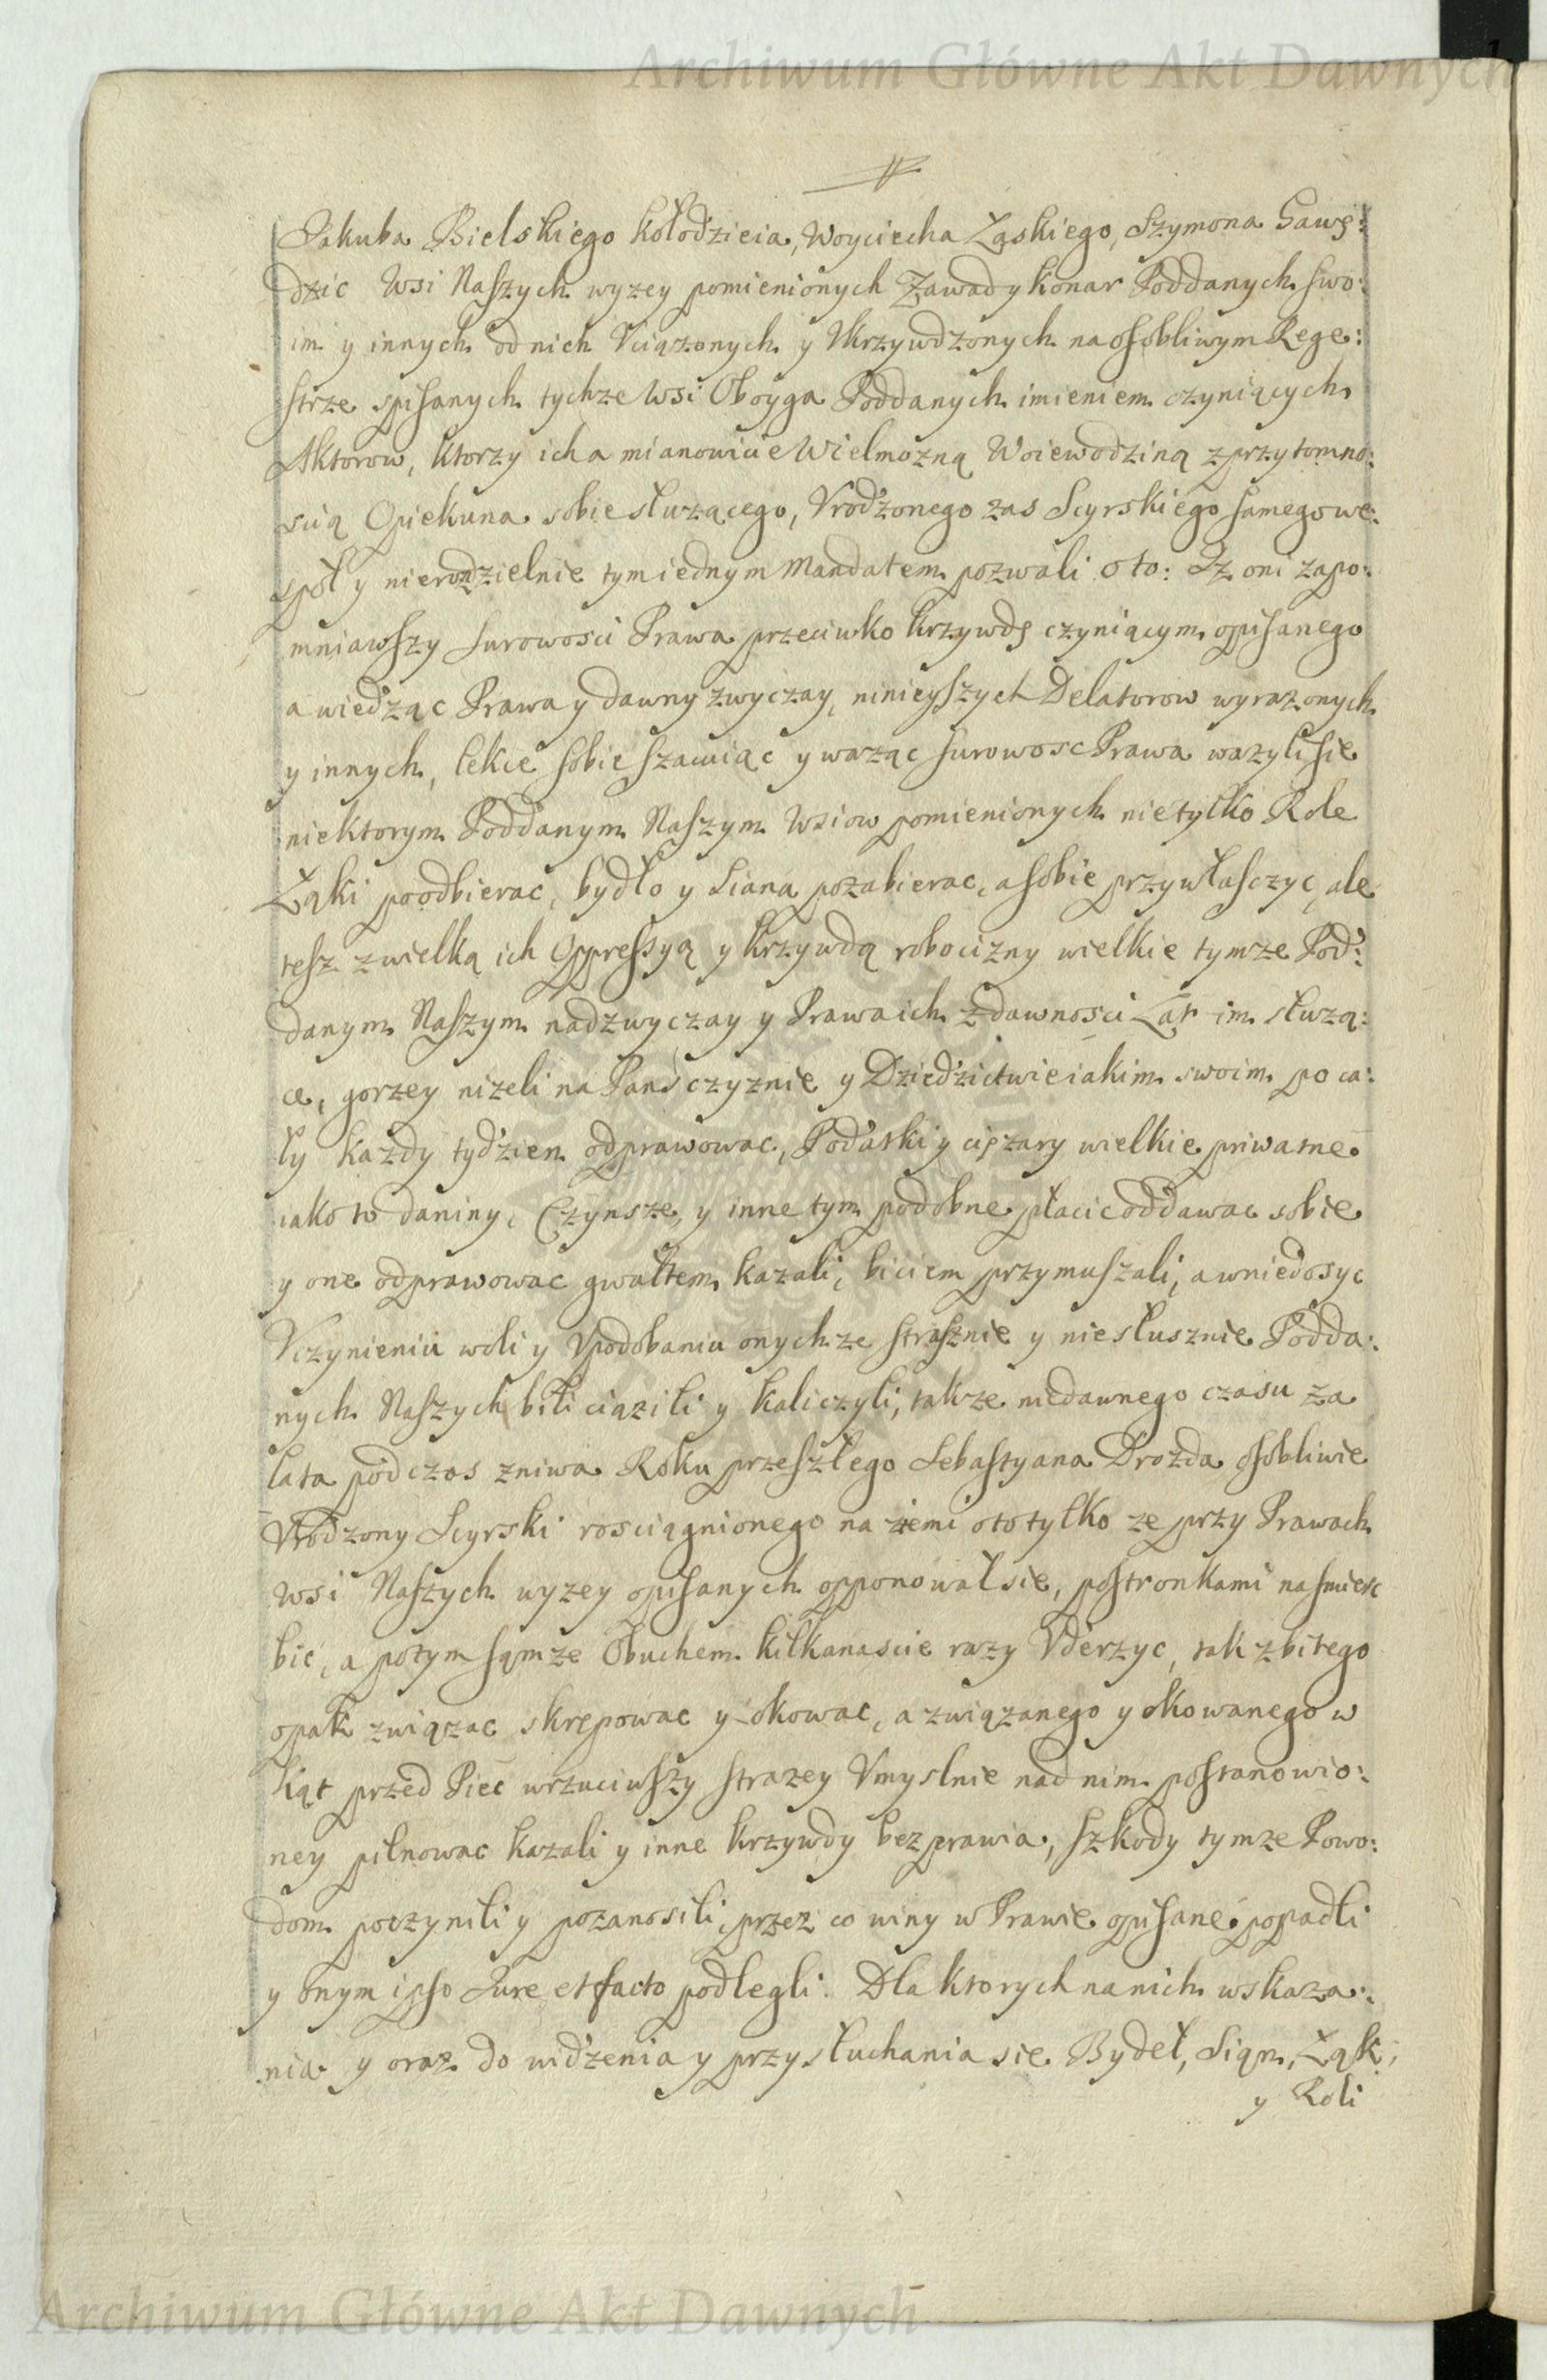 Archiwum Główne Akt Dawnych
Jakuba Bielskiego kołodzieia, Woyciecha Ląskiego, Szymona Gawę:
dzic Wsi Naszych wyzey pomienionych Zawad y Konar Poddanych swo:
im y innych od nich Vciązonych y Vkrzywdzonych na osobliwym Rege:
strze spisanych tychze Wsi Oboyga Poddanych imieniem czyniących
Aktorow, ktorzy ich a mianowicie Wielmozną Woiewodziną z przytomno:
scią Opiekuna sobie słuzącego, Vrodzonego zas Scyrskiego samego we:
społ y nierodzielnie tym iednym Mandatem pozwali o to: Iz oni zapo:
mniawszy surowosci Prawa przeciwko krzywdę czyniącym opisanego
a wiedząc Prawa y dawny zwyczay, ninieyszych Delatorow wyrazonych
y innych, lekce sobie szacuiąc y waząc surowosc Prawa wazyli sie
niektorym Poddanym Naszym Wsiow pomienionych nietylko Role
Łąki poodbierac, bydło y Siana pozabierac, a sobie przywłasczyc, ale
tesz z wielką ich Oppressyą y krzywdą robocizny wielkie tymze Pod:
danym Naszym nadzwyczay y Prawa ich z dawnosci Lat im słuzą:
ce, gorzey nizeli na Pansczyznie y Dziedzictwie iakim swoim po ca:
ły kazdy tydzien odprawowac, Podatki y cięzary wielkie priwatne
iako to daniny, Czynsze, y inne tym podobne płacic oddawac sobie
y one odprawowac gwałtem kazali, biciem przymuszali, a wniedosyc
Vczynieniu woli y Vpodobaniu onychze strasznie y niesłusznie Podda:
nych Naszych bili ciązili y kaliczyli, takze niedawnego czasu za
lata podczas zniwa Roku przeszłego Sebastyana Drozda osobliwie
Vrodzony Scyrski rosciągnionego na ziemi o to tylko ze przy Prawach
Wsi Naszych wyzey opisanych opponował sie, postronkami na smierc
bic, a potym sąmze Obuchem kilkanascie razy Vderzyc, tak zbitego
opak związac skrępowac y okowac, a związanego y okowanego w
kąt przed Piec wrzuciwszy strazey Vmyslnie nad nim postanowio:
ney pilnowac kazali y inne krzywdy bezprawia, szkody tymze Powo:
dom poczynili y pozanosili, przez co winy w Prawie opisane popadli
y onym ipso Jure et facto podlegli. Dla ktorych na nich wskaza:
nia y oraz do widzenia y przysłuchania sie Bydeł, Siąn, Łąk,
y Roli
Archiwum Główne Akt Dawnych